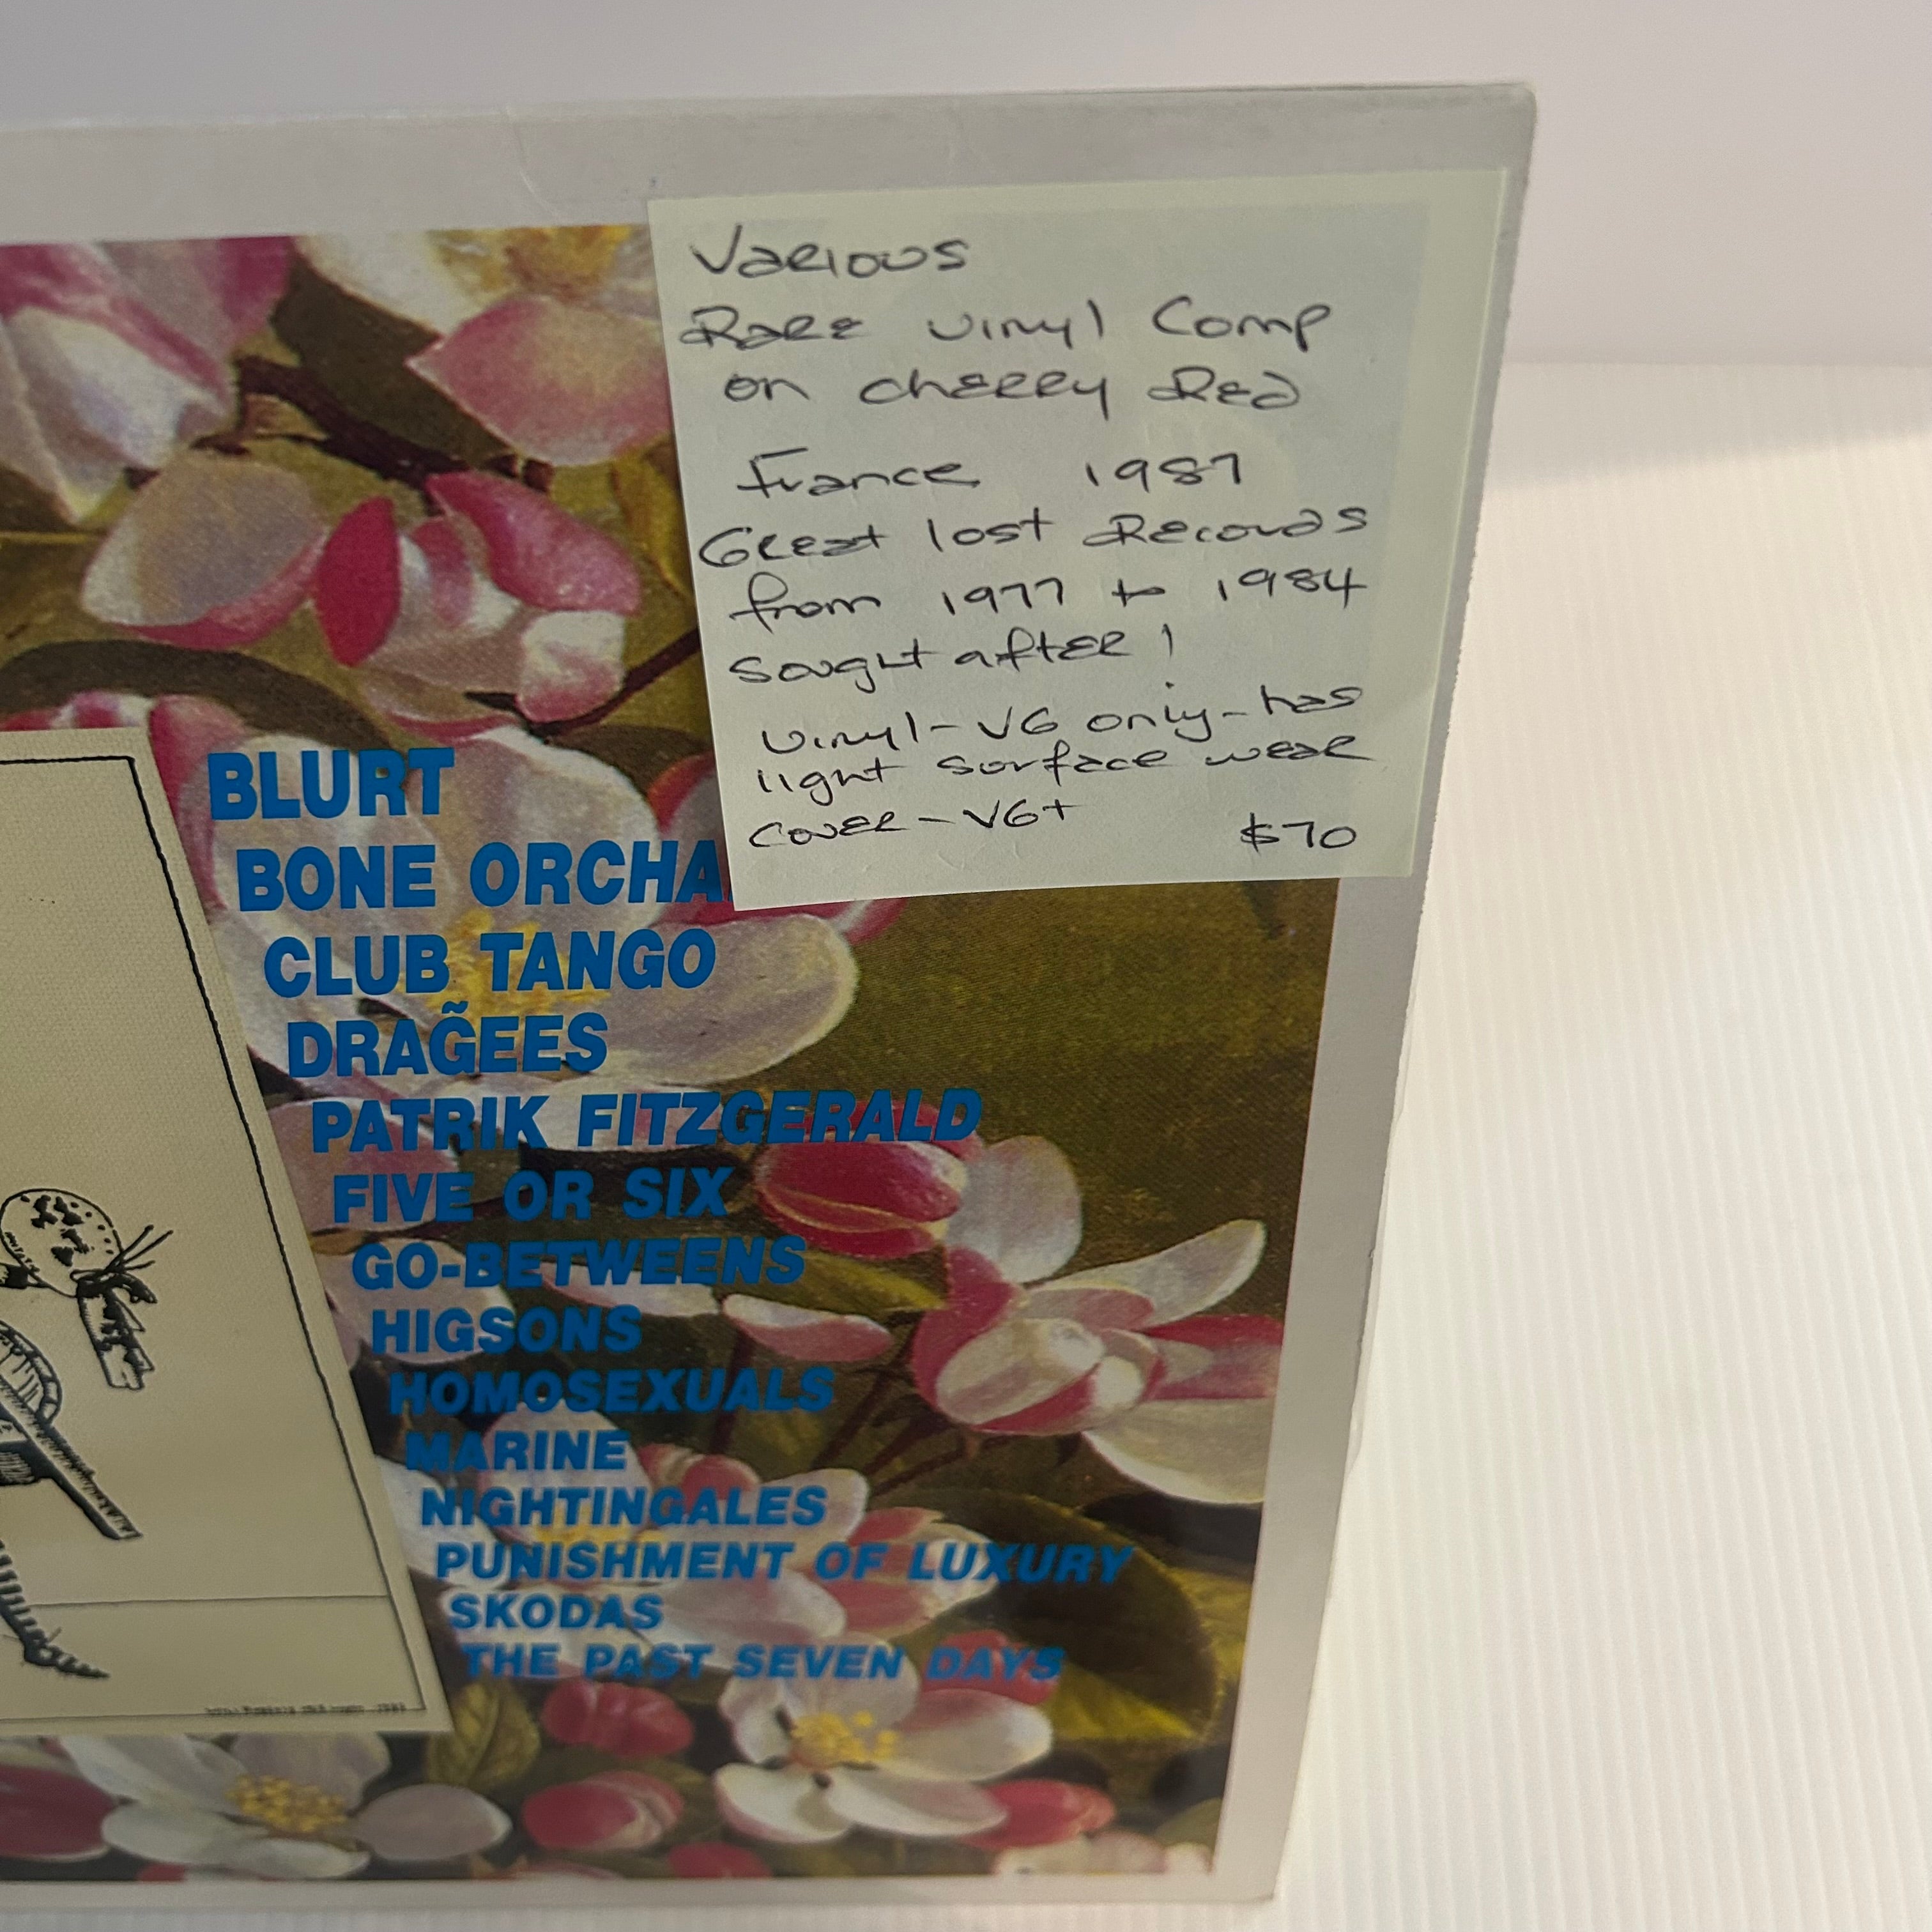 Various
Rare vinyl Comp
on cherry Red
France 1987
Great lost Records
from 1977 to 1984
sought after!
vinyl - VG only - has
light surface wear
cover - VG+
$70
BLURT
BONE ORCHA
CLUB TANGO
DRAG̃EES
PATRIK FITZGERALD
FIVE OR SIX
GO-BETWEENS
HIGSONS
HOMOSEXUALS
MARINE
NIGHTINGALES
PUNISHMENT OF LUXURY
SKODAS
THE PAST SEVEN DAYS